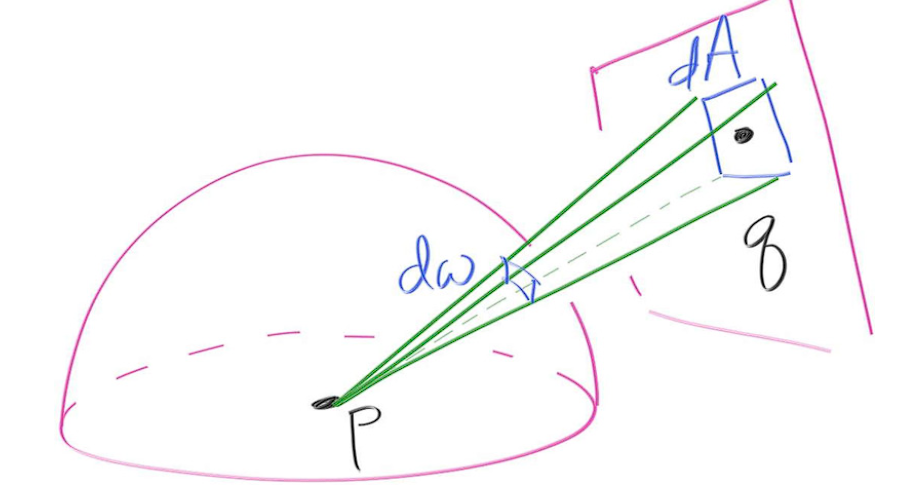 dA
q
dω
P